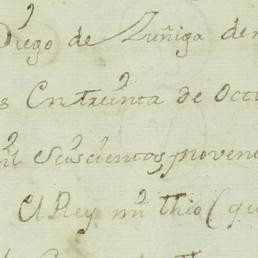 Diego de Zuñiga de
s En treinta de Octu
mil seiscientos noven
El Rey mi thio (qu